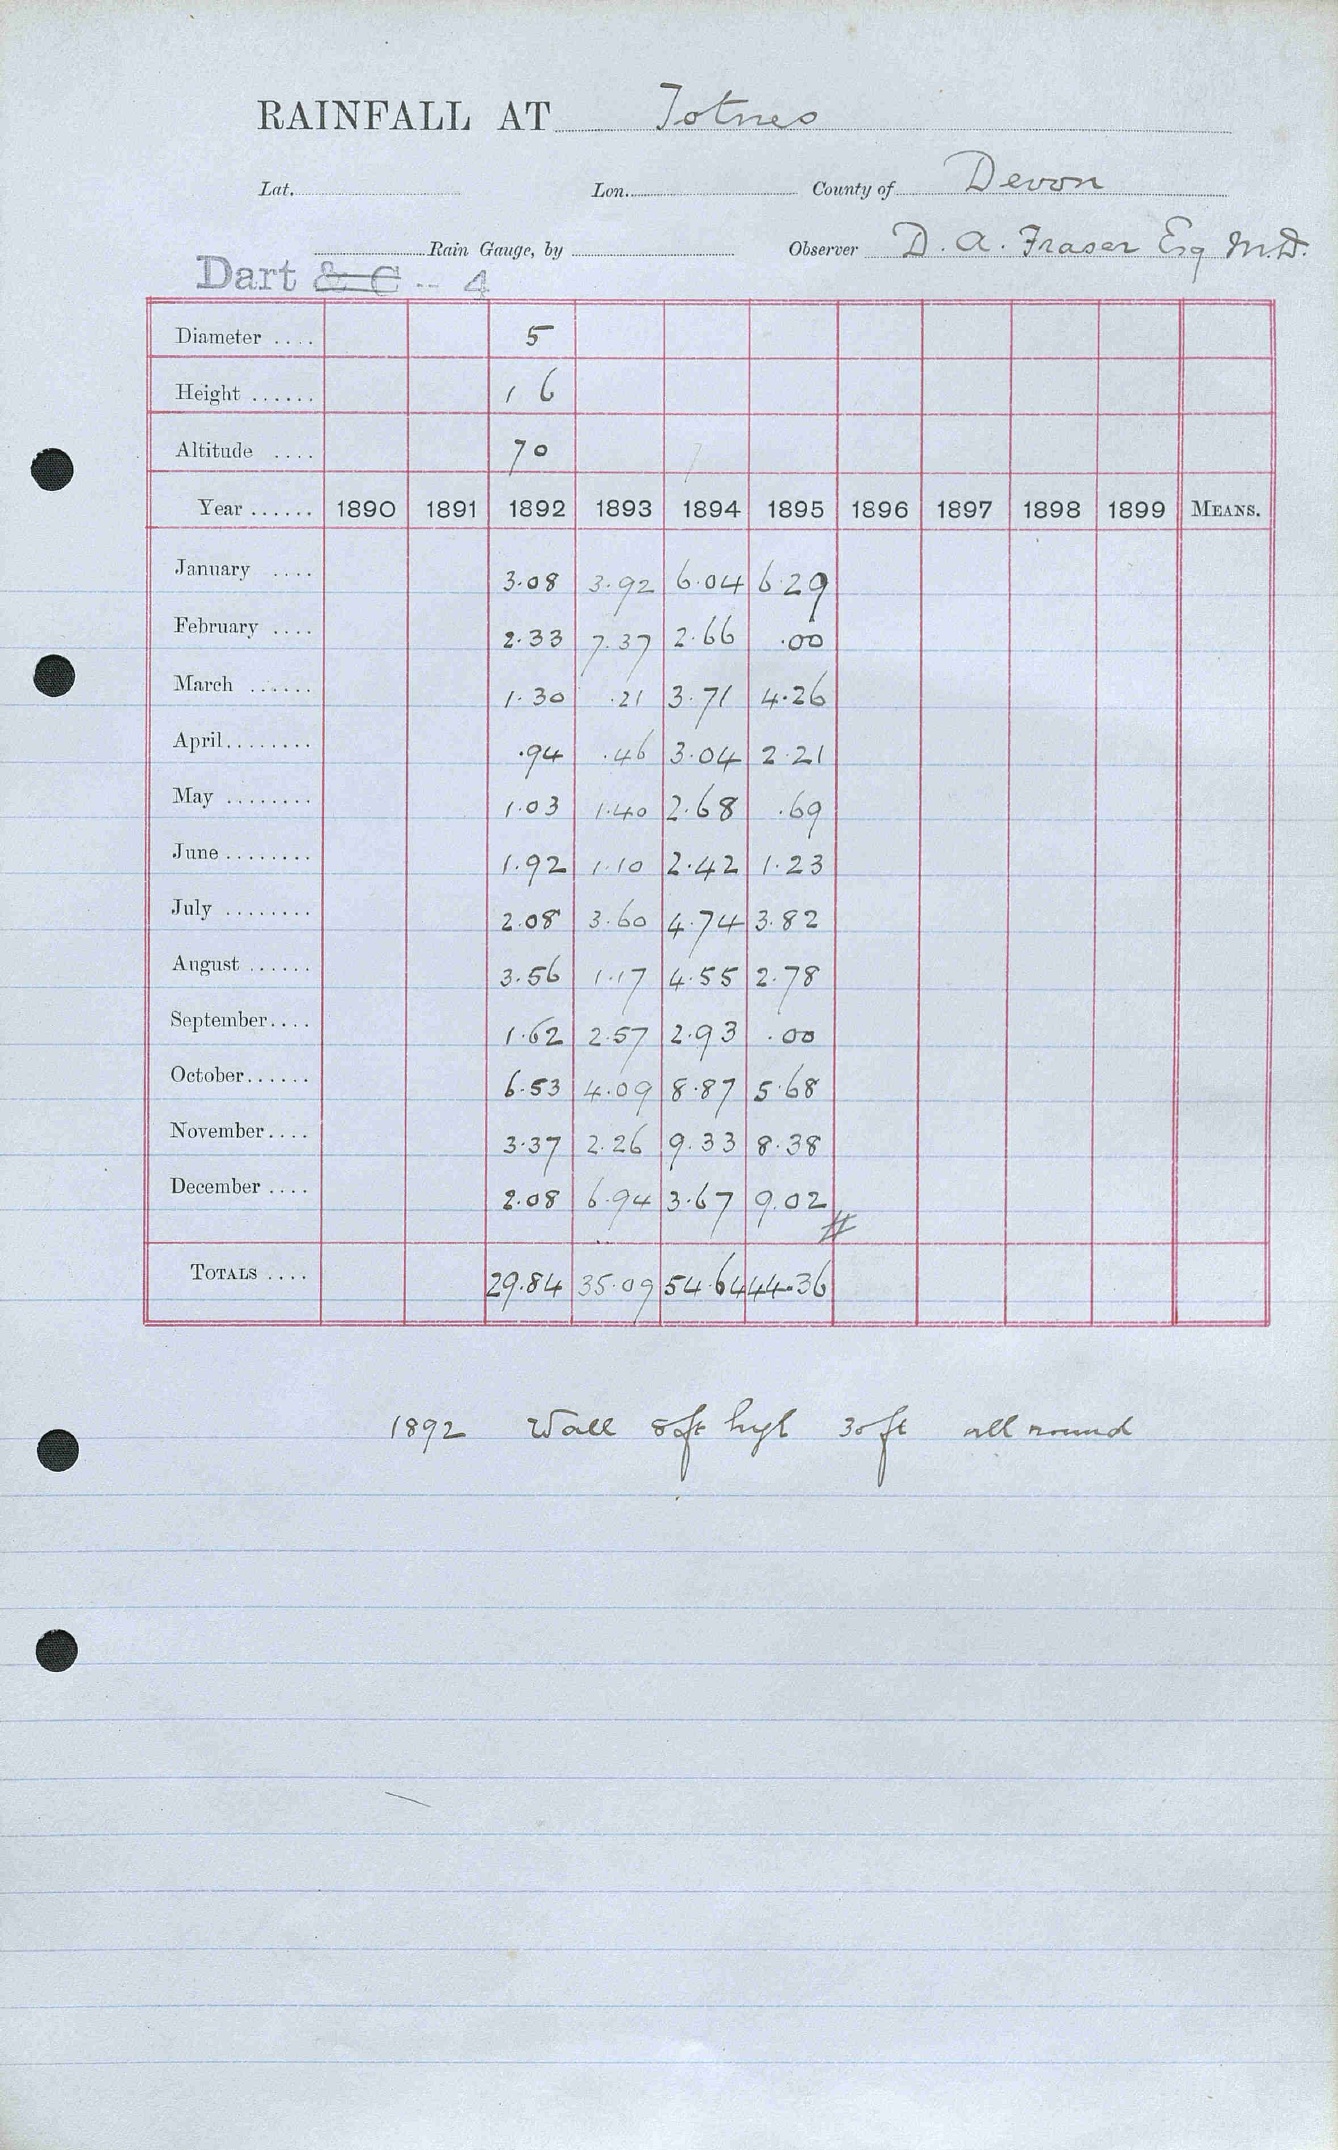 RAINFALL AT Totnes
Lat. Lon. County of Devon
Rain Gauge, by Observer D. A. Fraser Esq M.D.
Dart & C -- 4
Diameter .... 5
Height ...... 1 6
Altitude .... 70
Year ...... 1890 1891 1892 1893 1894 1895 1896 1897 1898 1899 MEANS.
January .... 3.08 3.92 6.04 6.29
February .... 2.33 7.37 2.66 .00
March ...... 1.30 .21 3.71 4.26
April........ .94 .46 3.04 2.21
May ........ 1.03 1.40 2.68 .69
June ........ 1.92 1.10 2.42 1.23
July ........ 2.08 3.60 4.74 3.82
August ...... 3.56 1.17 4.55 2.78
September.... 1.62 2.57 2.93 .00
October...... 6.53 4.09 8.87 5.68
November.... 3.37 2.26 9.33 8.38
December .... 2.08 6.94 3.67 9.02
#
TOTALS .... 29.84 35.09 54.64 44.36
1892 Wall 8ft high 30ft all round